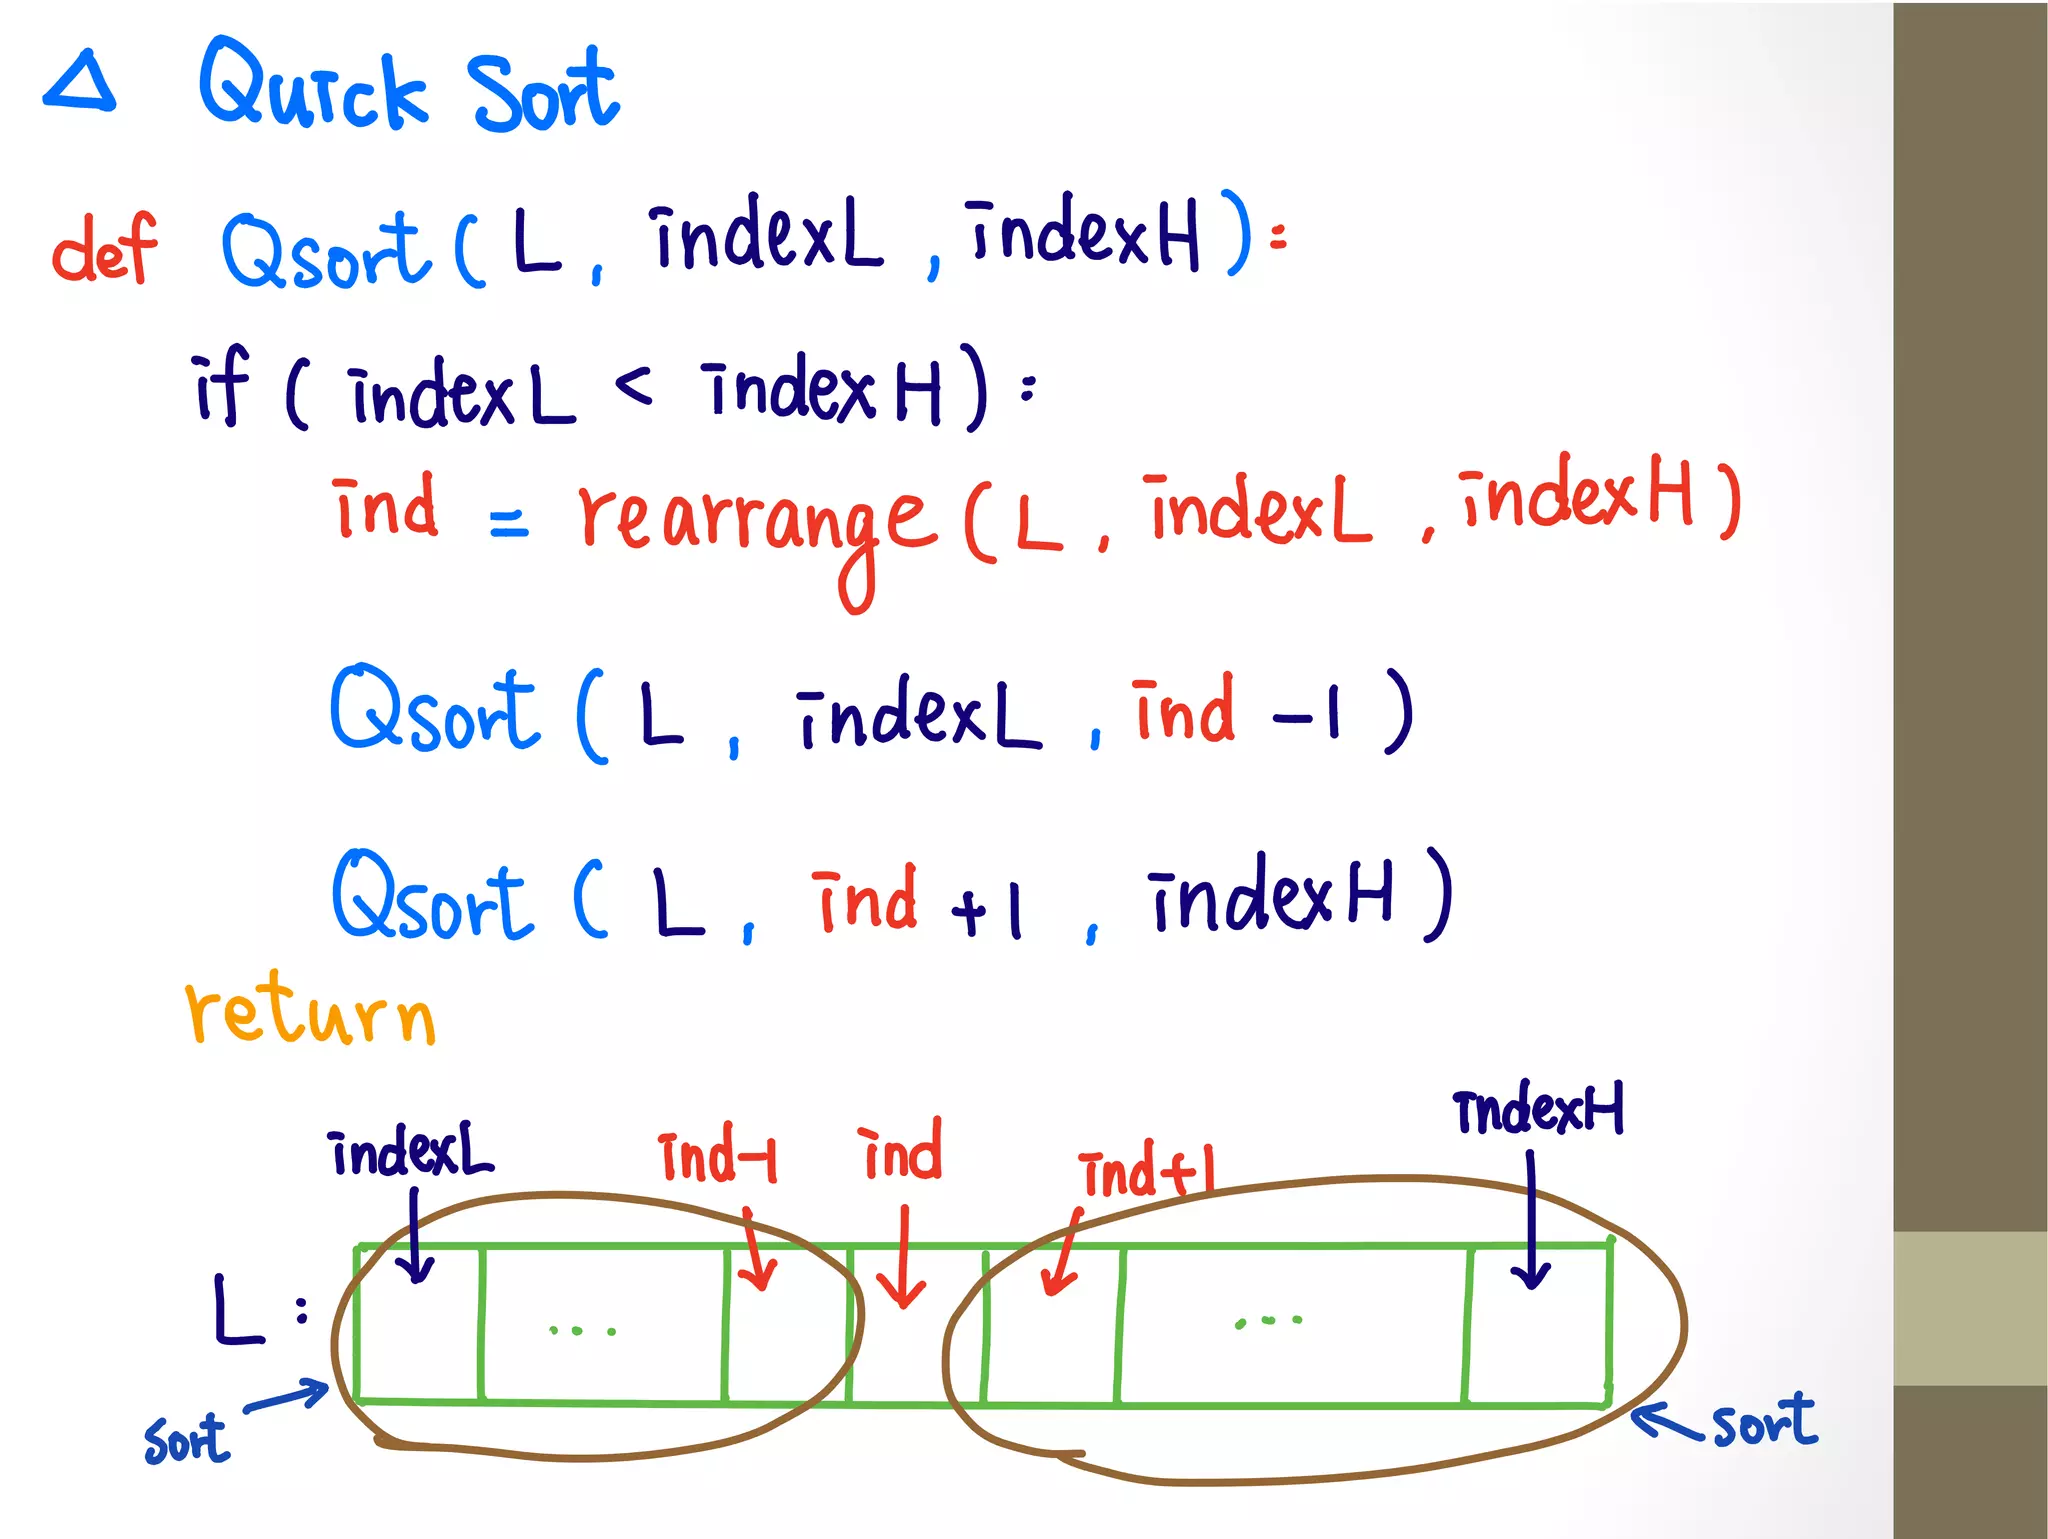 △ Quick Sort
def Qsort( L, indexL, indexH):
if ( indexL < indexH ):
ind = rearrange ( L, indexL, indexH)
Qsort ( L, indexL, ind -1 )
Qsort ( L, ind +1, indexH )
return
indexL ind-1 ind ind+1 indexH
L: ... ...
sort sort